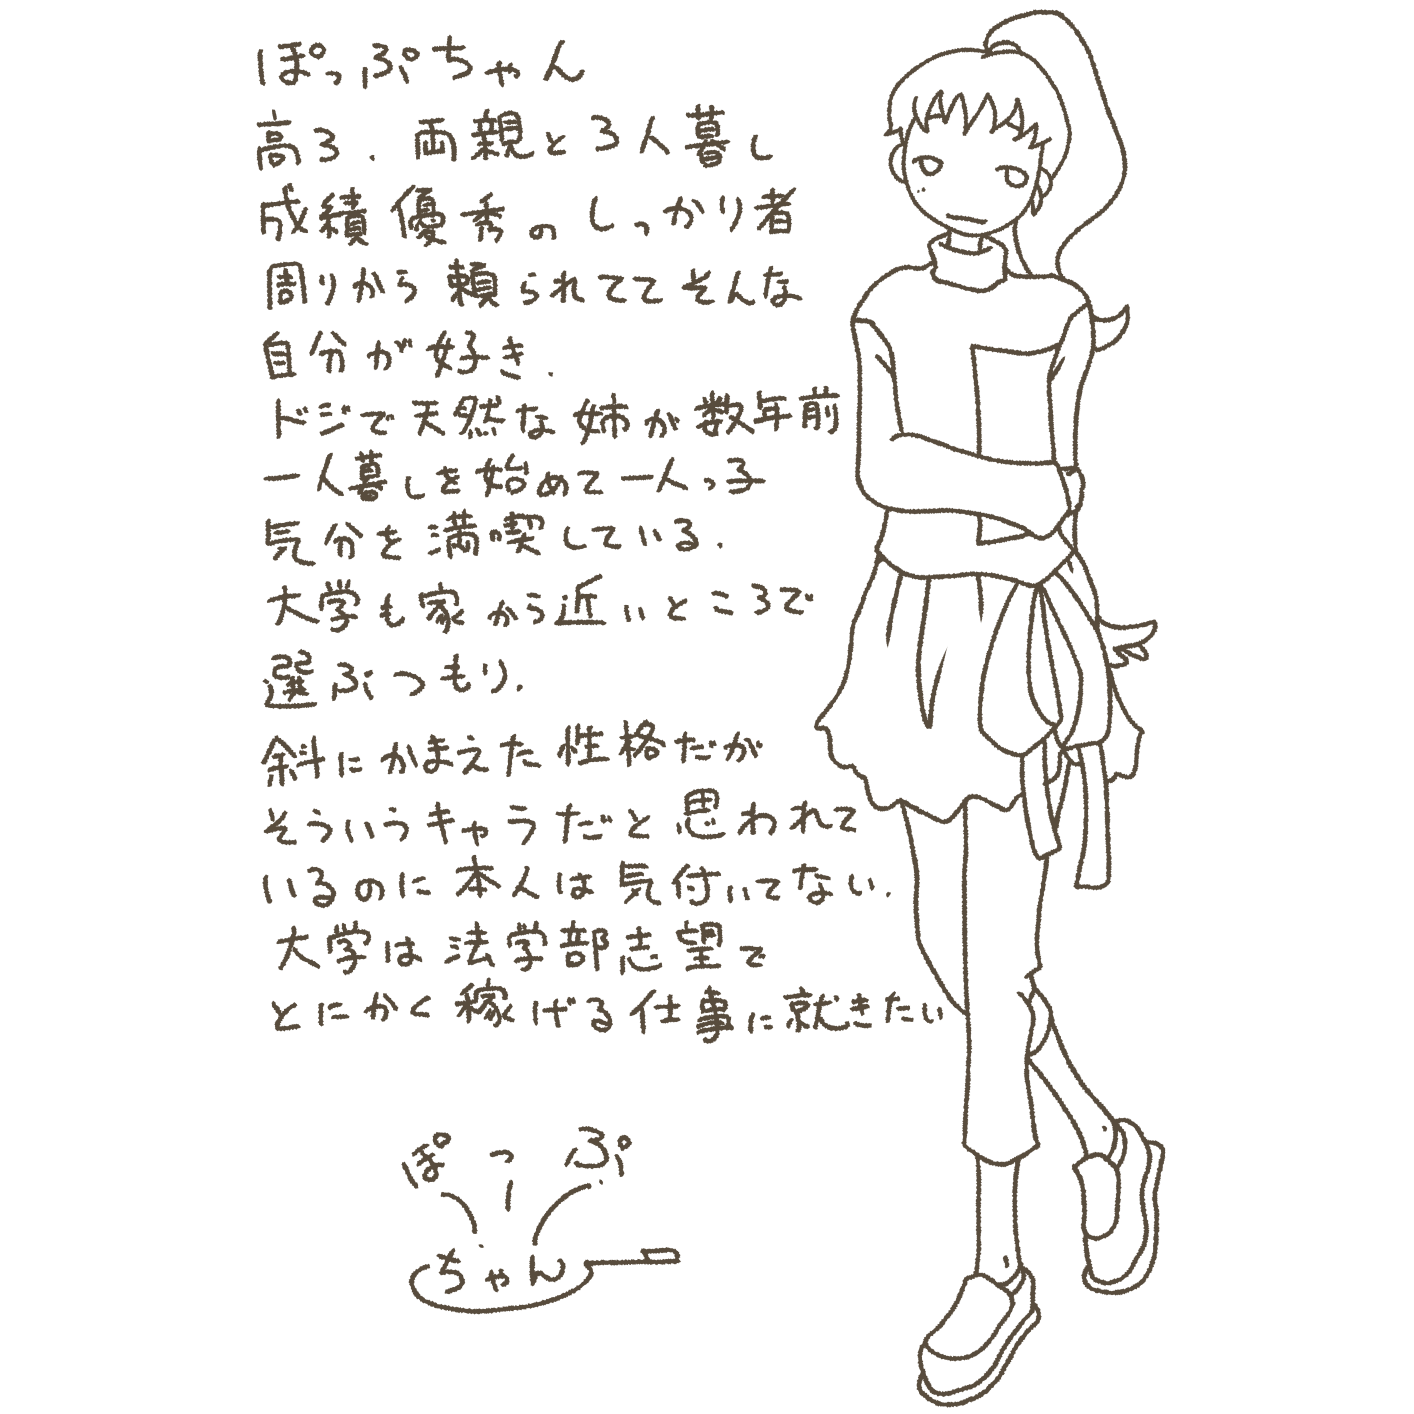 ぽっぷちゃん
高3．両親と3人暮し
成績優秀のしっかり者
周りから頼られててそんな
自分が好き．
ドジで天然な姉が数年前
一人暮しを始めて一人っ子
気分を満喫している．
大学も家から近いところで
選ぶつもり．
斜にかまえた性格だが
そういうキャラだと思われて
いるのに本人は気付いてない．
大学は法学部志望で
とにかく稼げる仕事に就きたい
ぽっぷ
ちゃん